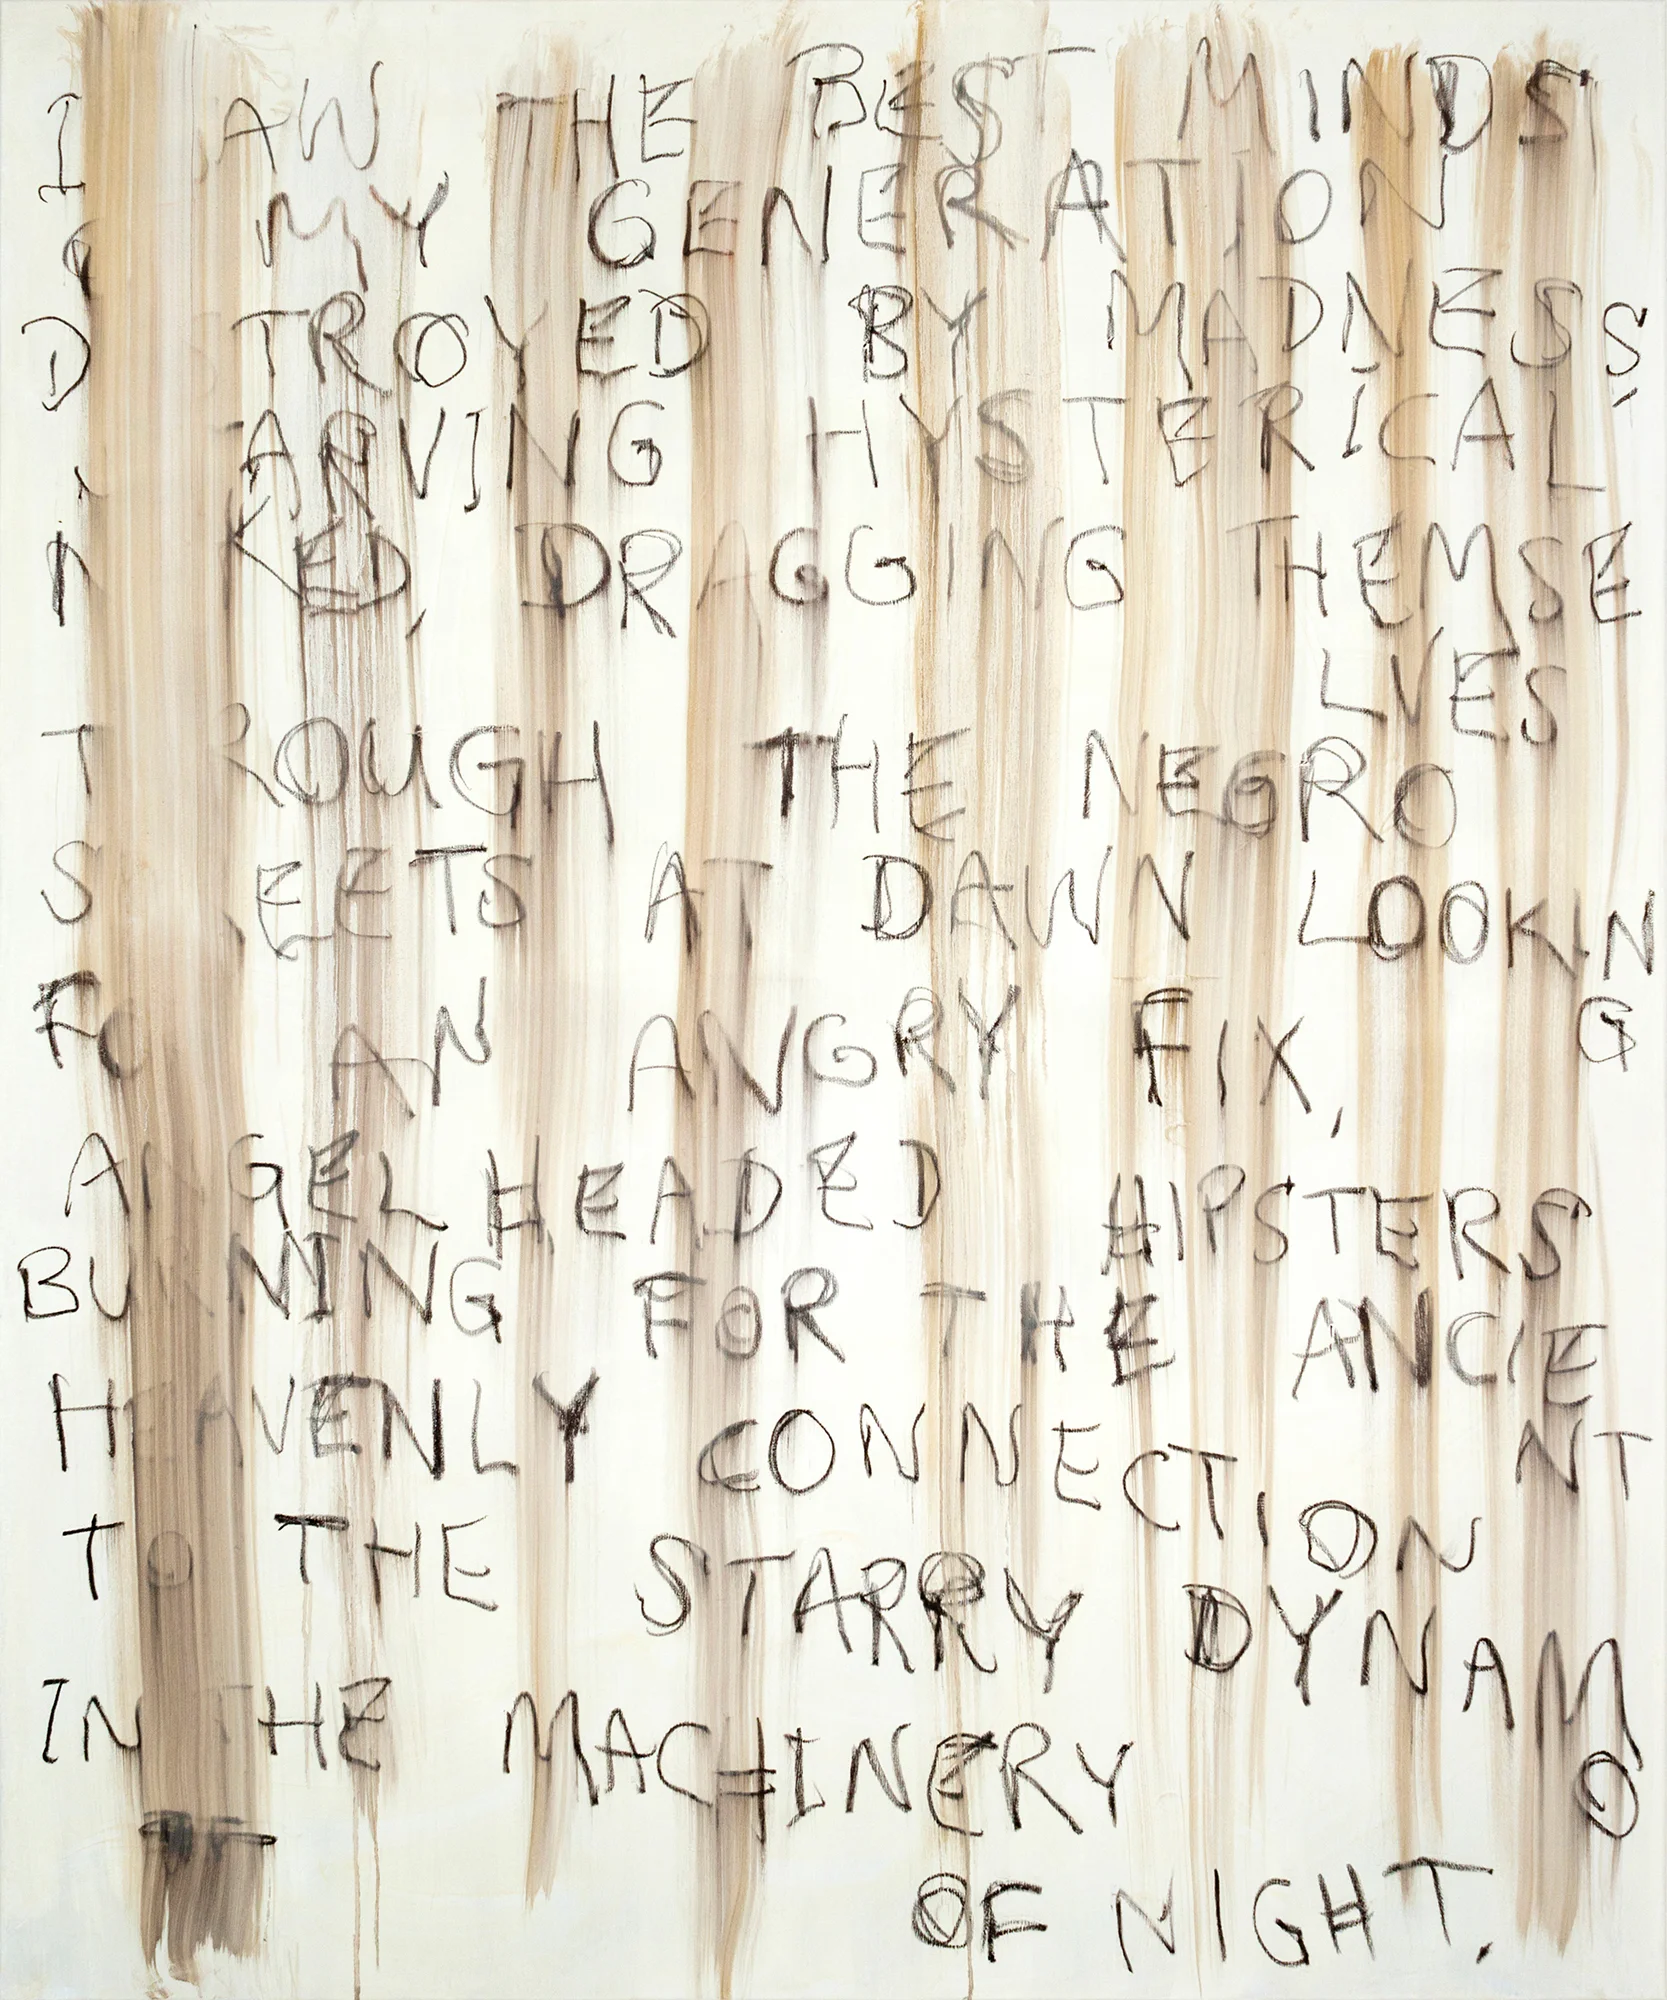 I AW THE BEST MINDS
MY GENERATION
D TROYED BY MADNESS,
ARVING HYSTERICAL
KED, DRAGGING THEMSE
LVES
T ROUGH THE NEGRO
S EETS AT DAWN LOOKIN
G
FO AN ANGRY FIX,
ANGELHEADED HIPSTERS
BURNING FOR THE ANCIE
NT
HEAVENLY CONNECTION
TO THE STARRY DYNAM
O
IN THE MACHINERY
OF NIGHT.